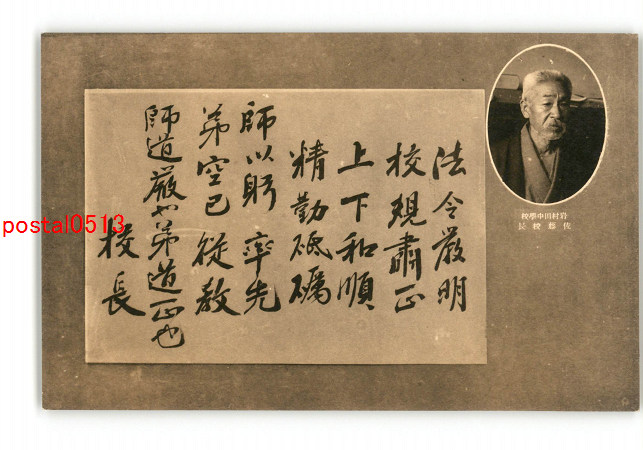 法令嚴明
校規肅正
上下和順
精勤砥礪
師以躬率先
弟空已從教
師道嚴也弟道正也
校長
岩村田中學校
佐藤校長
postal0513